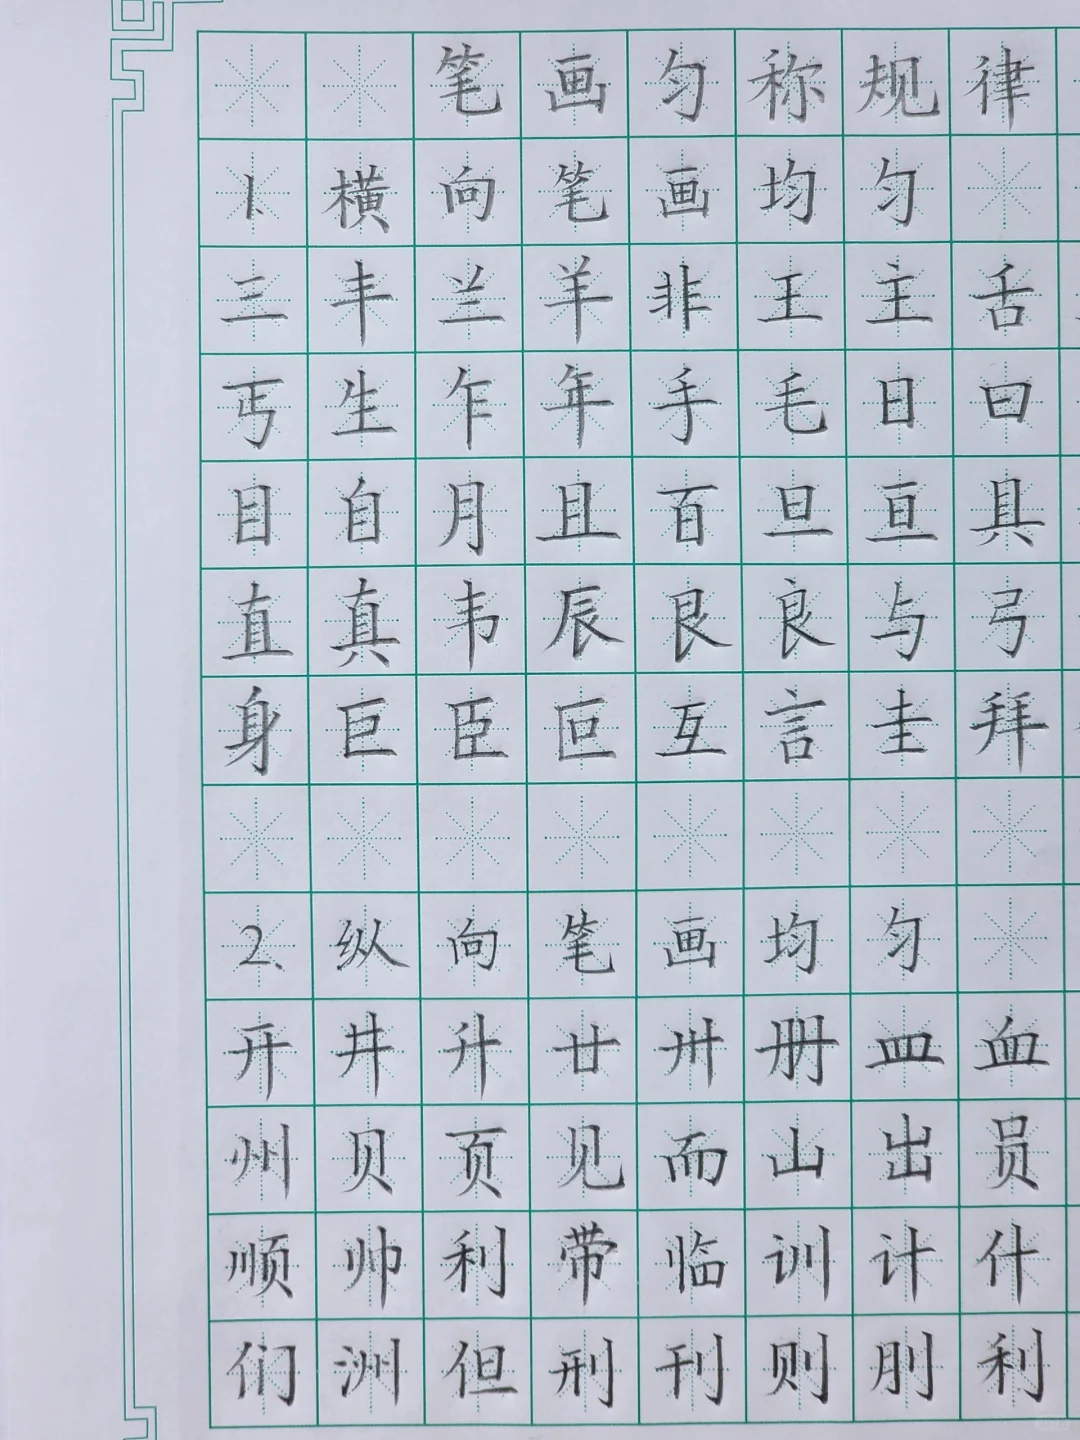 笔画匀称规律
1.横向笔画均匀
三丰兰羊非王主舌
丐生乍年手毛日曰
目自月且百旦亘具
直真韦辰艮良与弓
身巨臣叵互言圭拜
2、纵向笔画均匀
开井升廿卅册皿血
州贝页见而山出员
顺帅利带临训计什
们洲但刑刊则刖利